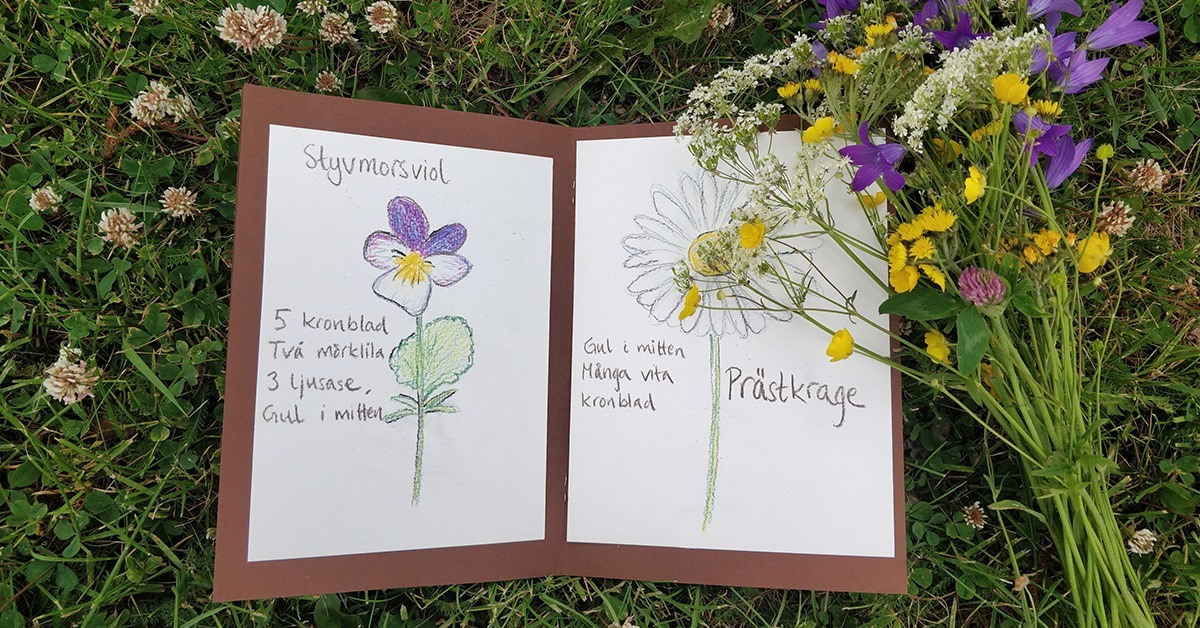 Styvmorsviol
5 kronblad
Två mörklila
3 ljusase,
Gul i mitten
Gul i mitten
Många vita
kronblad
Prästkrage